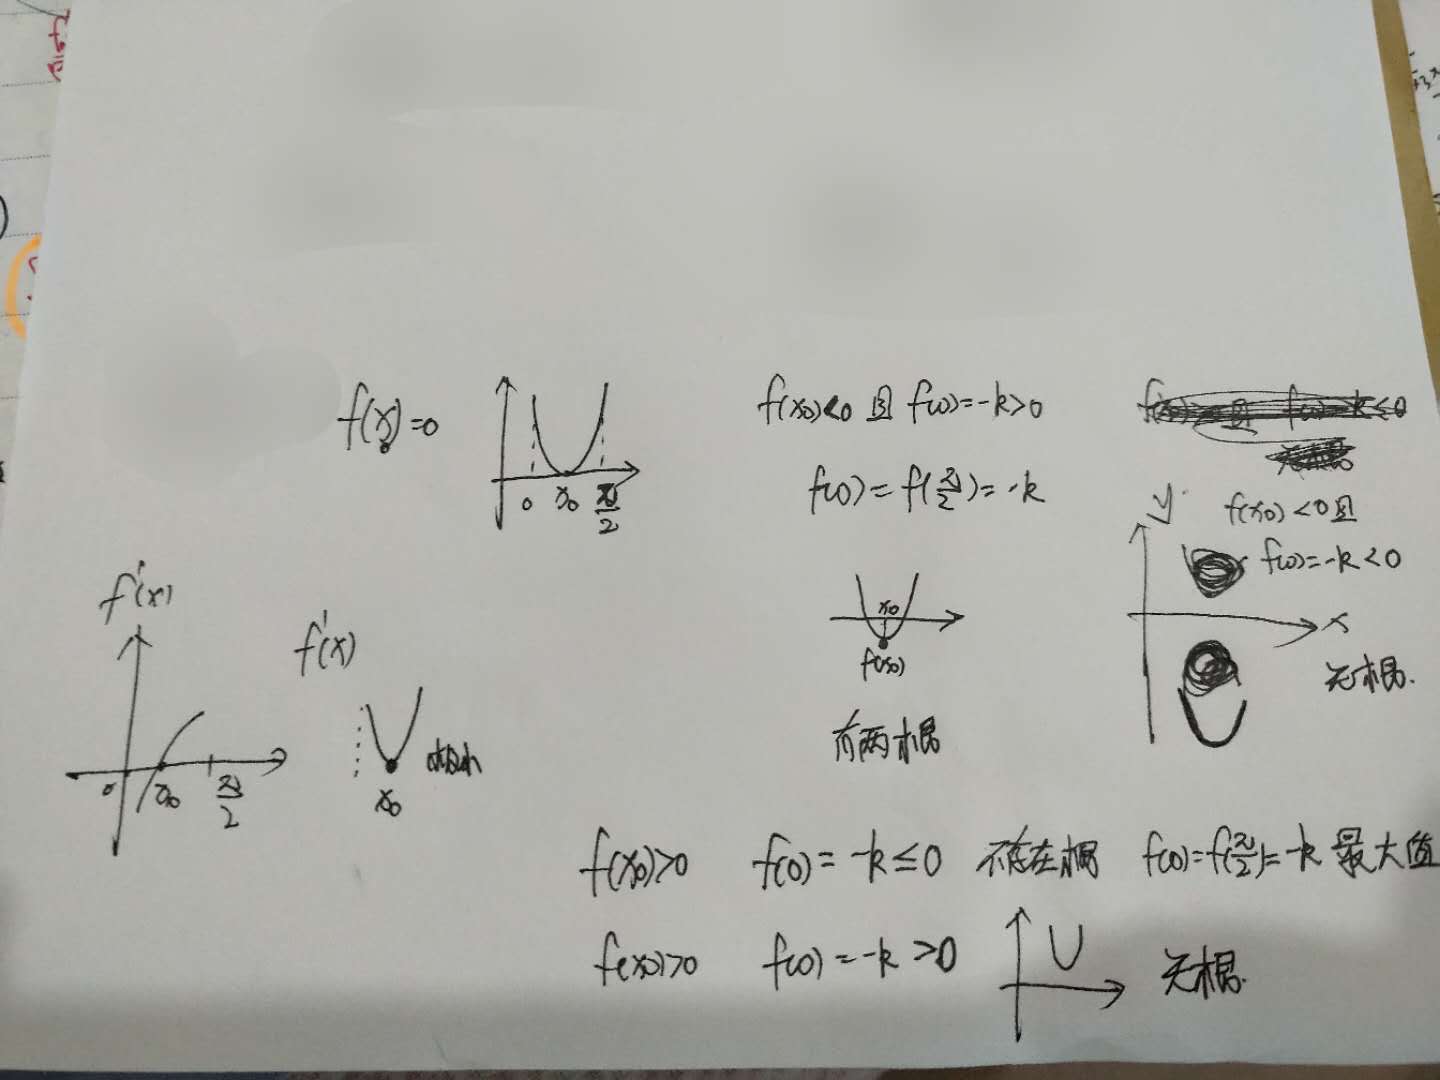 f(x₀)=0
0 x₀ π/2
f(x₀)<0 且 f(0)=-k>0
f(0)=f(π/2)=-k
x₀
f(x₀)
有两根
y
f(x₀)<0且
f(0)=-k<0
x
无根.
f'(x)
0 x₀ π/2
f'(x)
x₀
f(x₀)>0 f(0)=-k≤0 不存在根 f(0)=f(π/2)=-k 最大值
f(x₀)>0 f(0)=-k>0 无根.